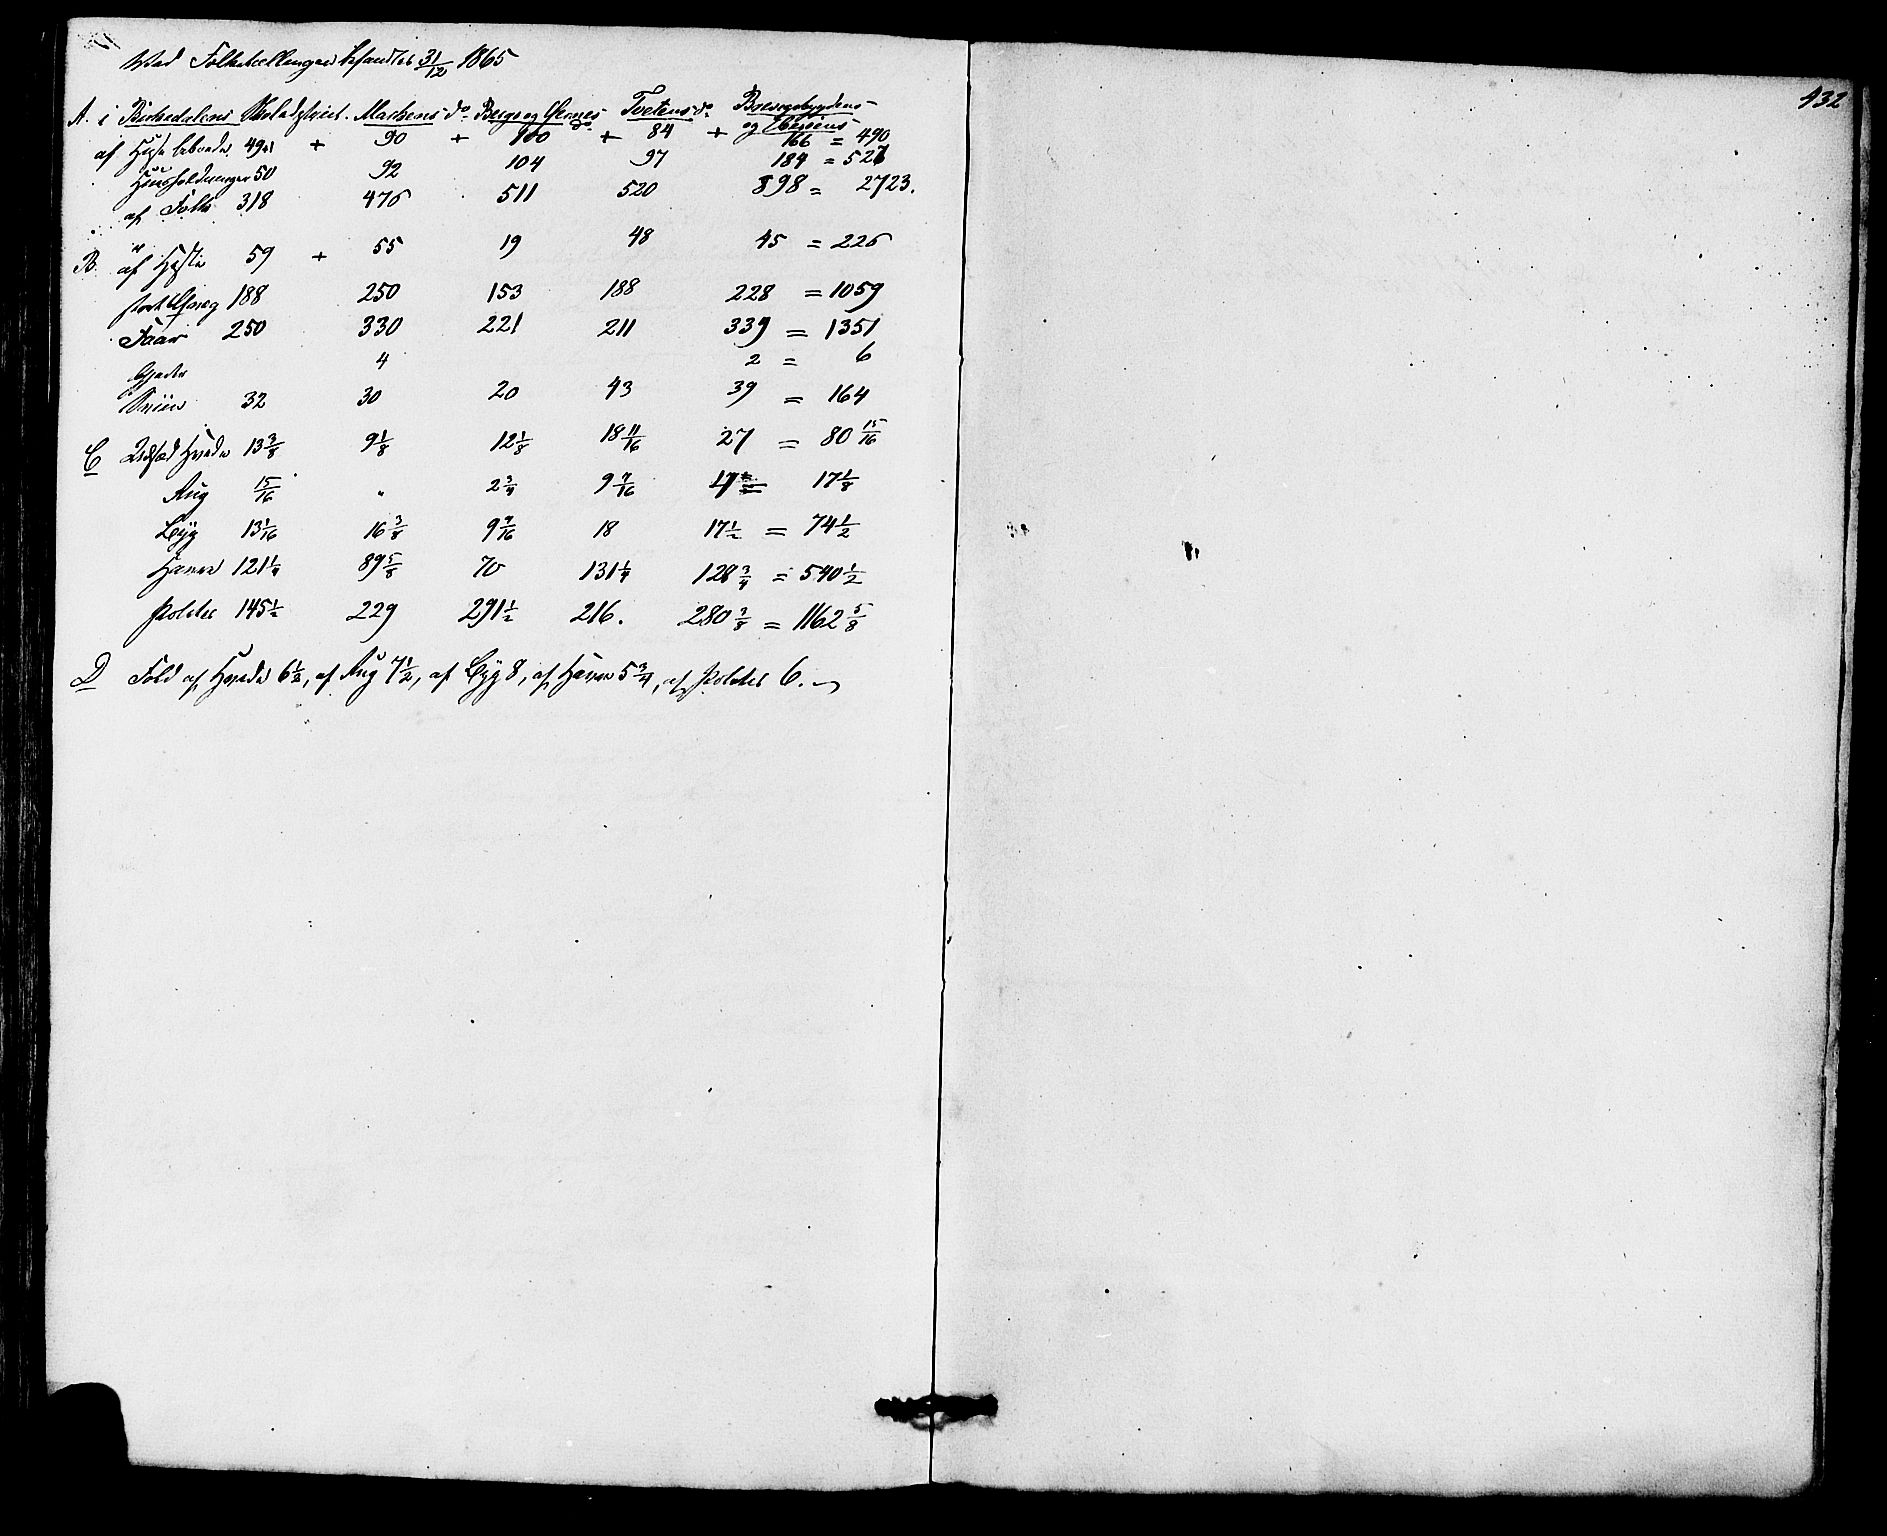 Ved Folketællingen befandtes 31/12 1865
A. i Birkedalens Skoledistrict. Markens do Berge og Hernes do Tvetens do Borvigebygdens
og
af Huse beboede 49 + 90 + 100 + 84 + 166 = 490
Huusholdninger 50 92 104 97 184 = 527
af Folk 318 476 511 520 898 = 2723.
B. af Heste 59 + 55 19 48 45 = 226
stort Qvæg 188 250 153 188 228 = 1059
Faar 250 330 221 211 339 = 1351
Gjeder 4 2 = 6
Sviin 32 30 20 43 39 = 164
C Udsæd Hvede 13 3/8 9 1/8 12 1/8 18 11/16 27 = 80 15/16
Rug 15/16 " 2 3/4 9 7/16 = 17 1/8
Byg 13 1/16 16 3/8 9 7/16 18 17 1/2 = 74 1/2
Havre 121 1/4 89 5/8 70 131 1/4 128 3/4 = 540 1/2
Poteter 145 1/2 229 291 1/2 216. 280 3/8 = 1162 5/8
D Fold af Hvede 6 1/2, af Rug 7 1/2, af Byg 8, af Havre 5 3/4, af Poteter 6.
432